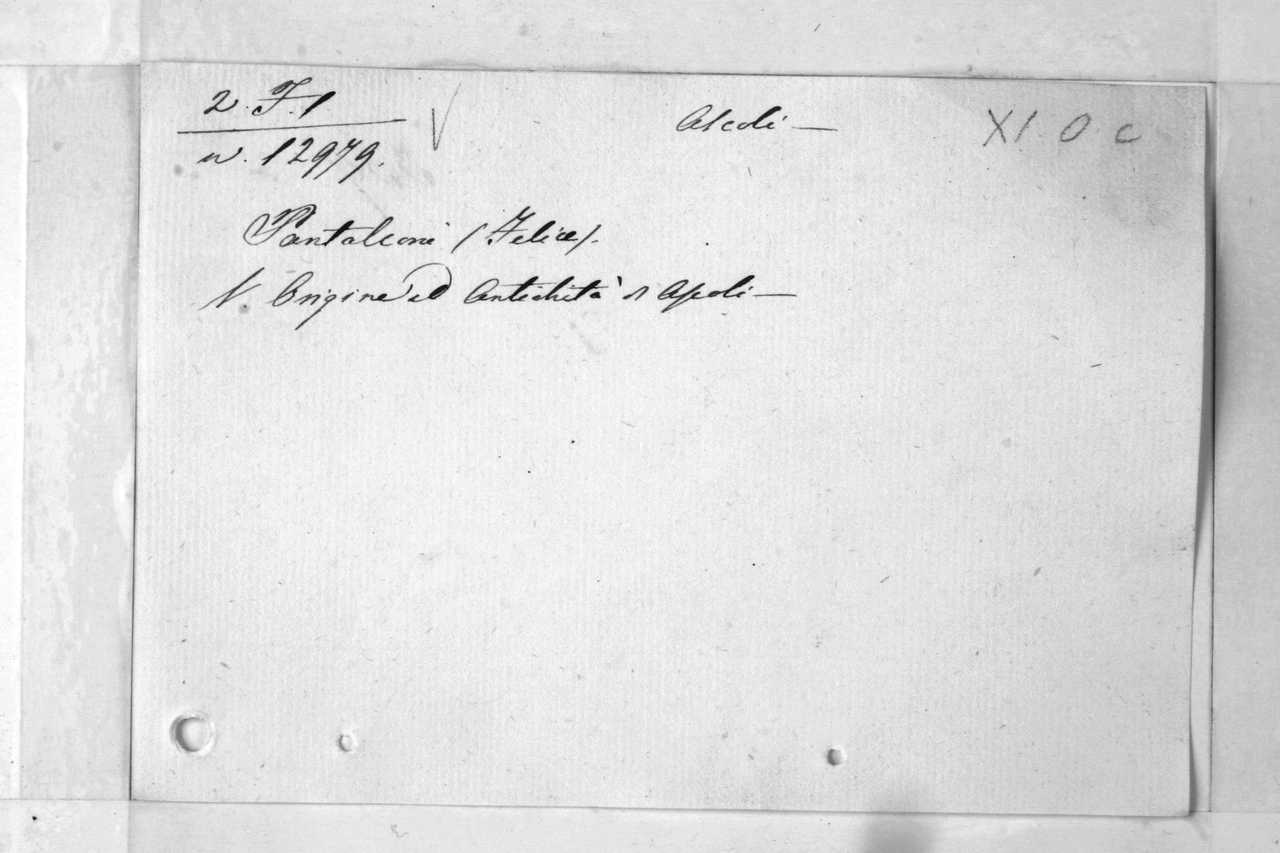 2. F. 1
Ascoli —
XI O C
n. 12979.
Pantaleoni (Felice).
V. Origine ed Antichità di Ascoli —